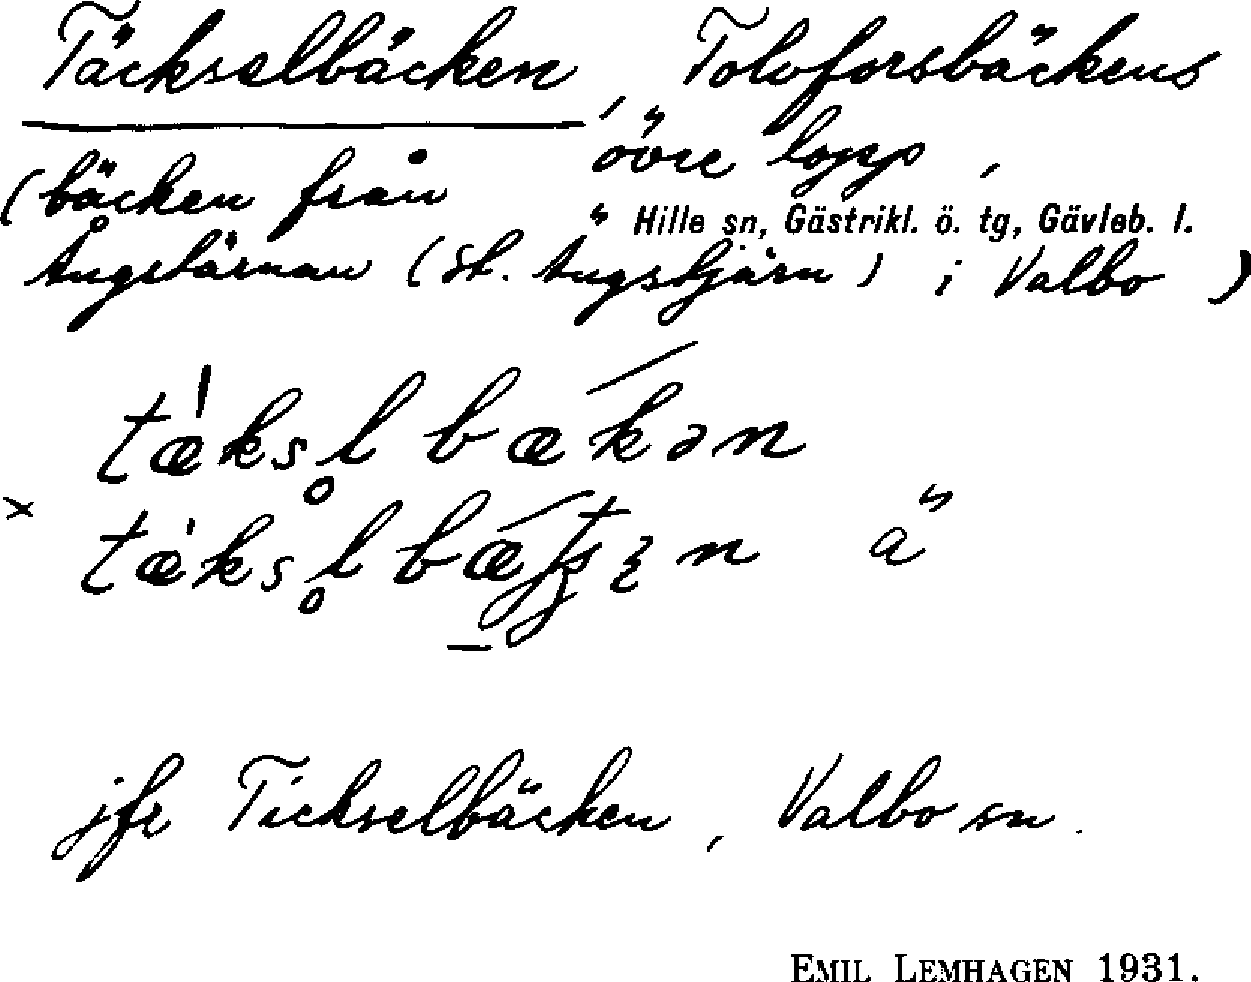 Täckselbäcken, Toloforsbäckens
övre lopp,
(bäcken från
Hille sn, Gästrikl. ö. tg, Gävleb. l.
Ängstärnan (St. Ängstjärn) i Valbo)
jfr Tickselbäcken, Valbo sn.
EMIL LEMHAGEN 1931.